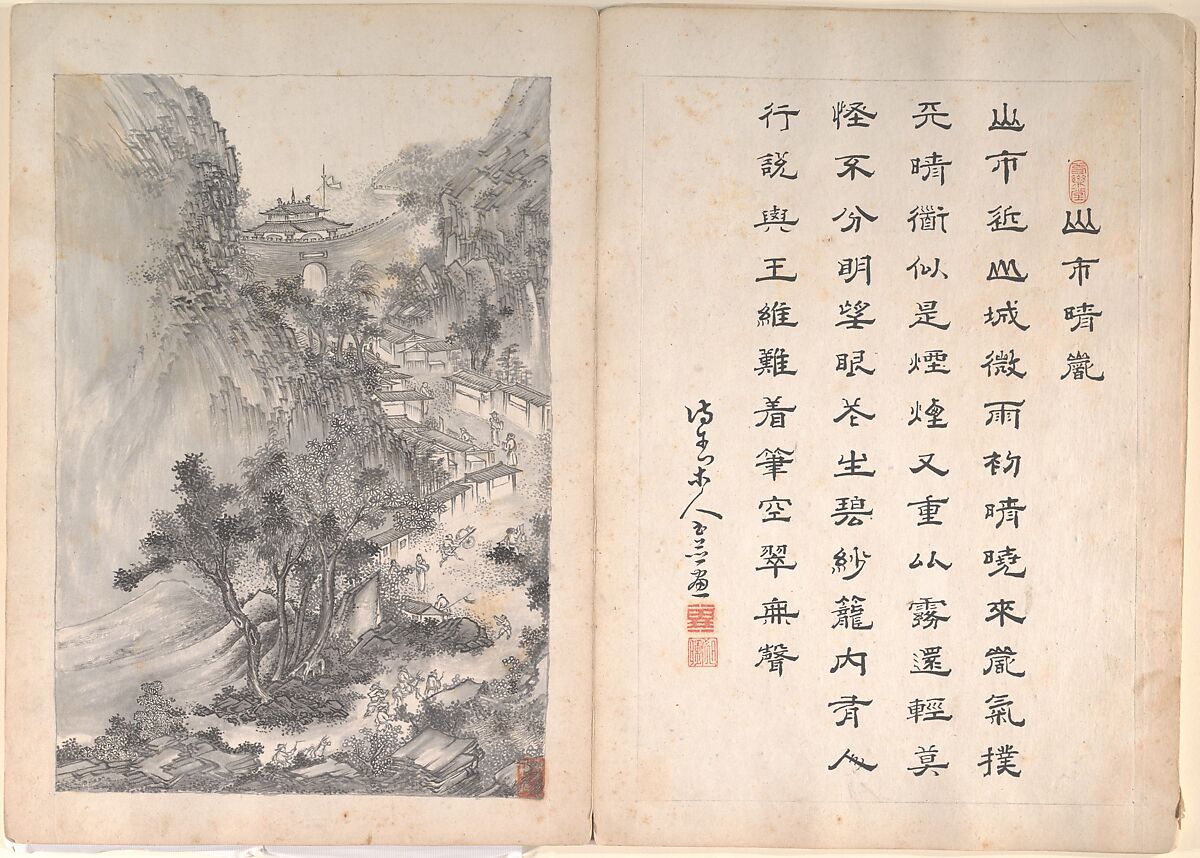 山市晴嵐
山市近山城微雨初晴曉來嵐氣撲
天晴衢似是煙煙又重以霧還輕莫
怪不分明望眼花生碧紗籠內有人
行說與王維難着筆空翠無聲
木人畫